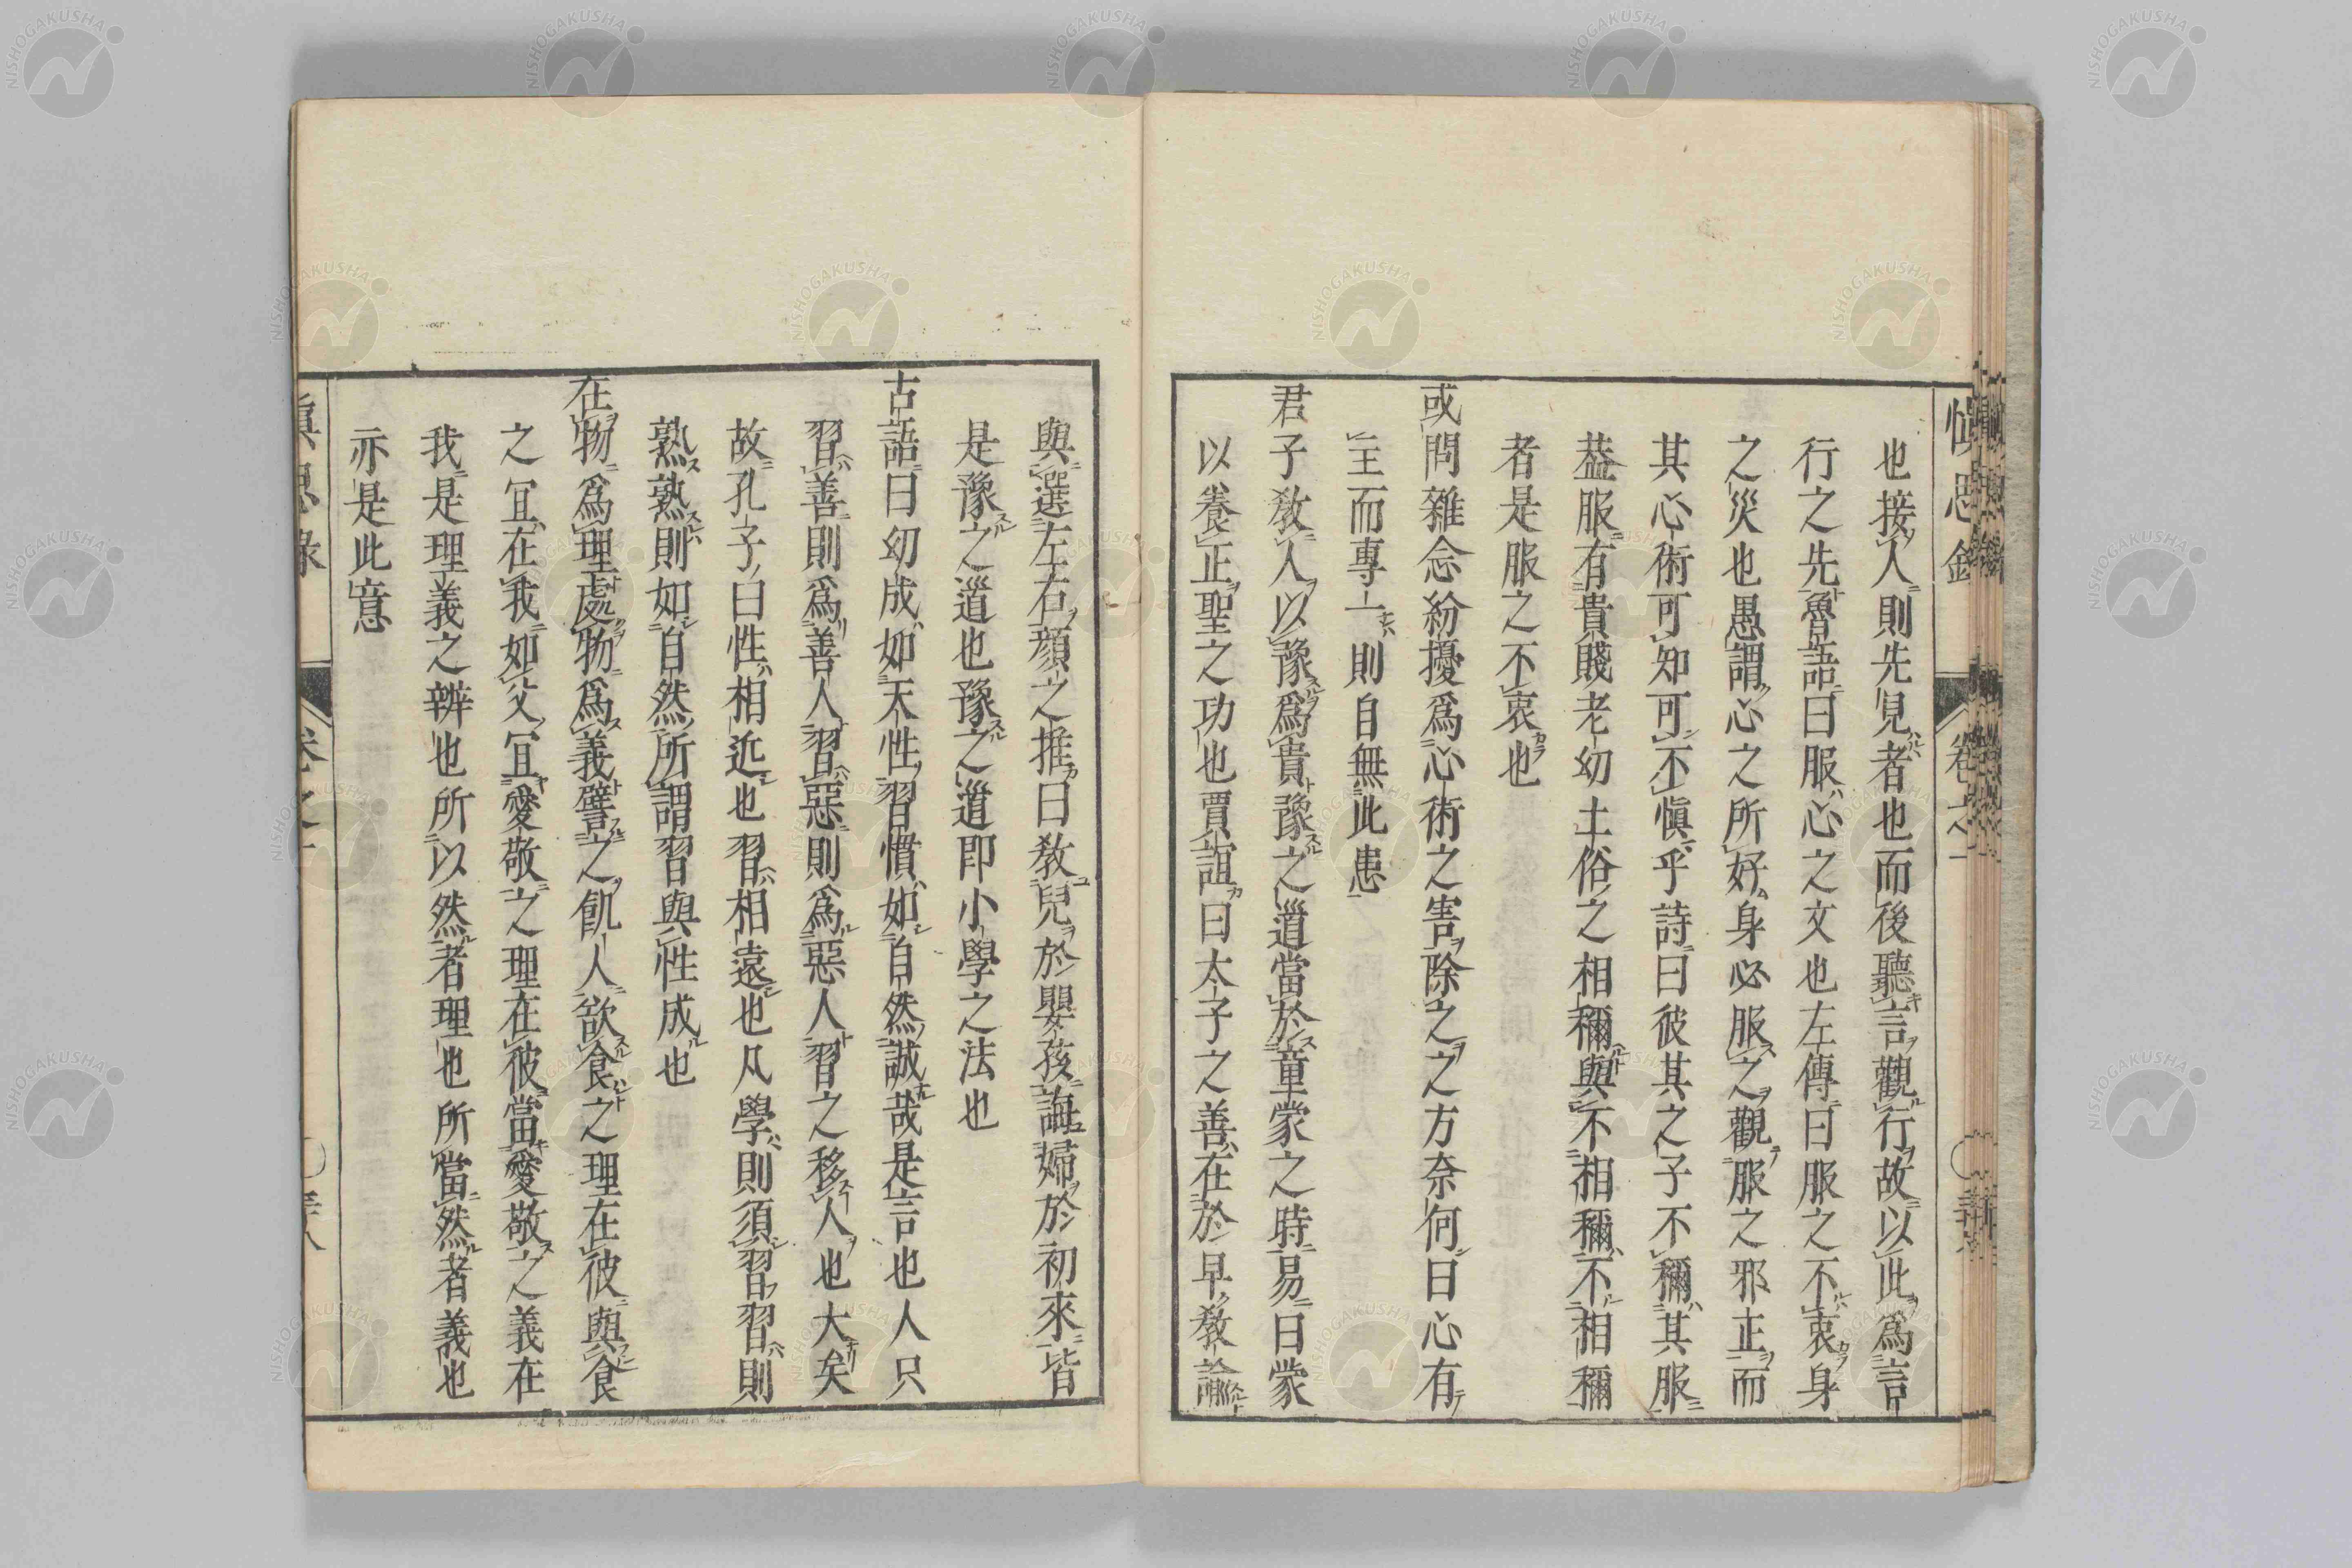 慎思錄
卷之一
也接人則先見者也而後聽言觀行故以此爲言
行之先魯語曰服心之文也左傳曰服之不衷身
之災也愚謂心之所好身必服之觀服之邪正而
其心術可知可不愼乎詩曰彼其之子不稱其服
蓋服有貴賤老幼土俗之相稱與不相稱不相稱
者是服之不衷也
或問雜念紛擾爲心術之害除之之方奈何曰心有
主而專一則自無此患
君子敎人以豫爲貴豫之道當於童蒙之時易曰蒙
以養正聖之功也賈誼曰太子之善在於早敎諭
與選左右顏之推曰敎兒於嬰孩誨婦於初來皆
是豫之道也豫之道即小學之法也
古語曰幼成如天性習慣如自然誠哉是言也人只
習善則爲善人習惡則爲惡人習之移人也大矣
故孔子曰性相近也習相遠也凡學則須習習則
熟熟則如自然所謂習與性成也
在物爲理處物爲義譬之飢人欲食之理在彼與食
之宜在我如父宜愛敬之理在彼當愛敬之義在
我是理義之辨也所以然者理也所當然者義也
亦是此意
愼思錄
卷之一
NISHOGAKUSHA